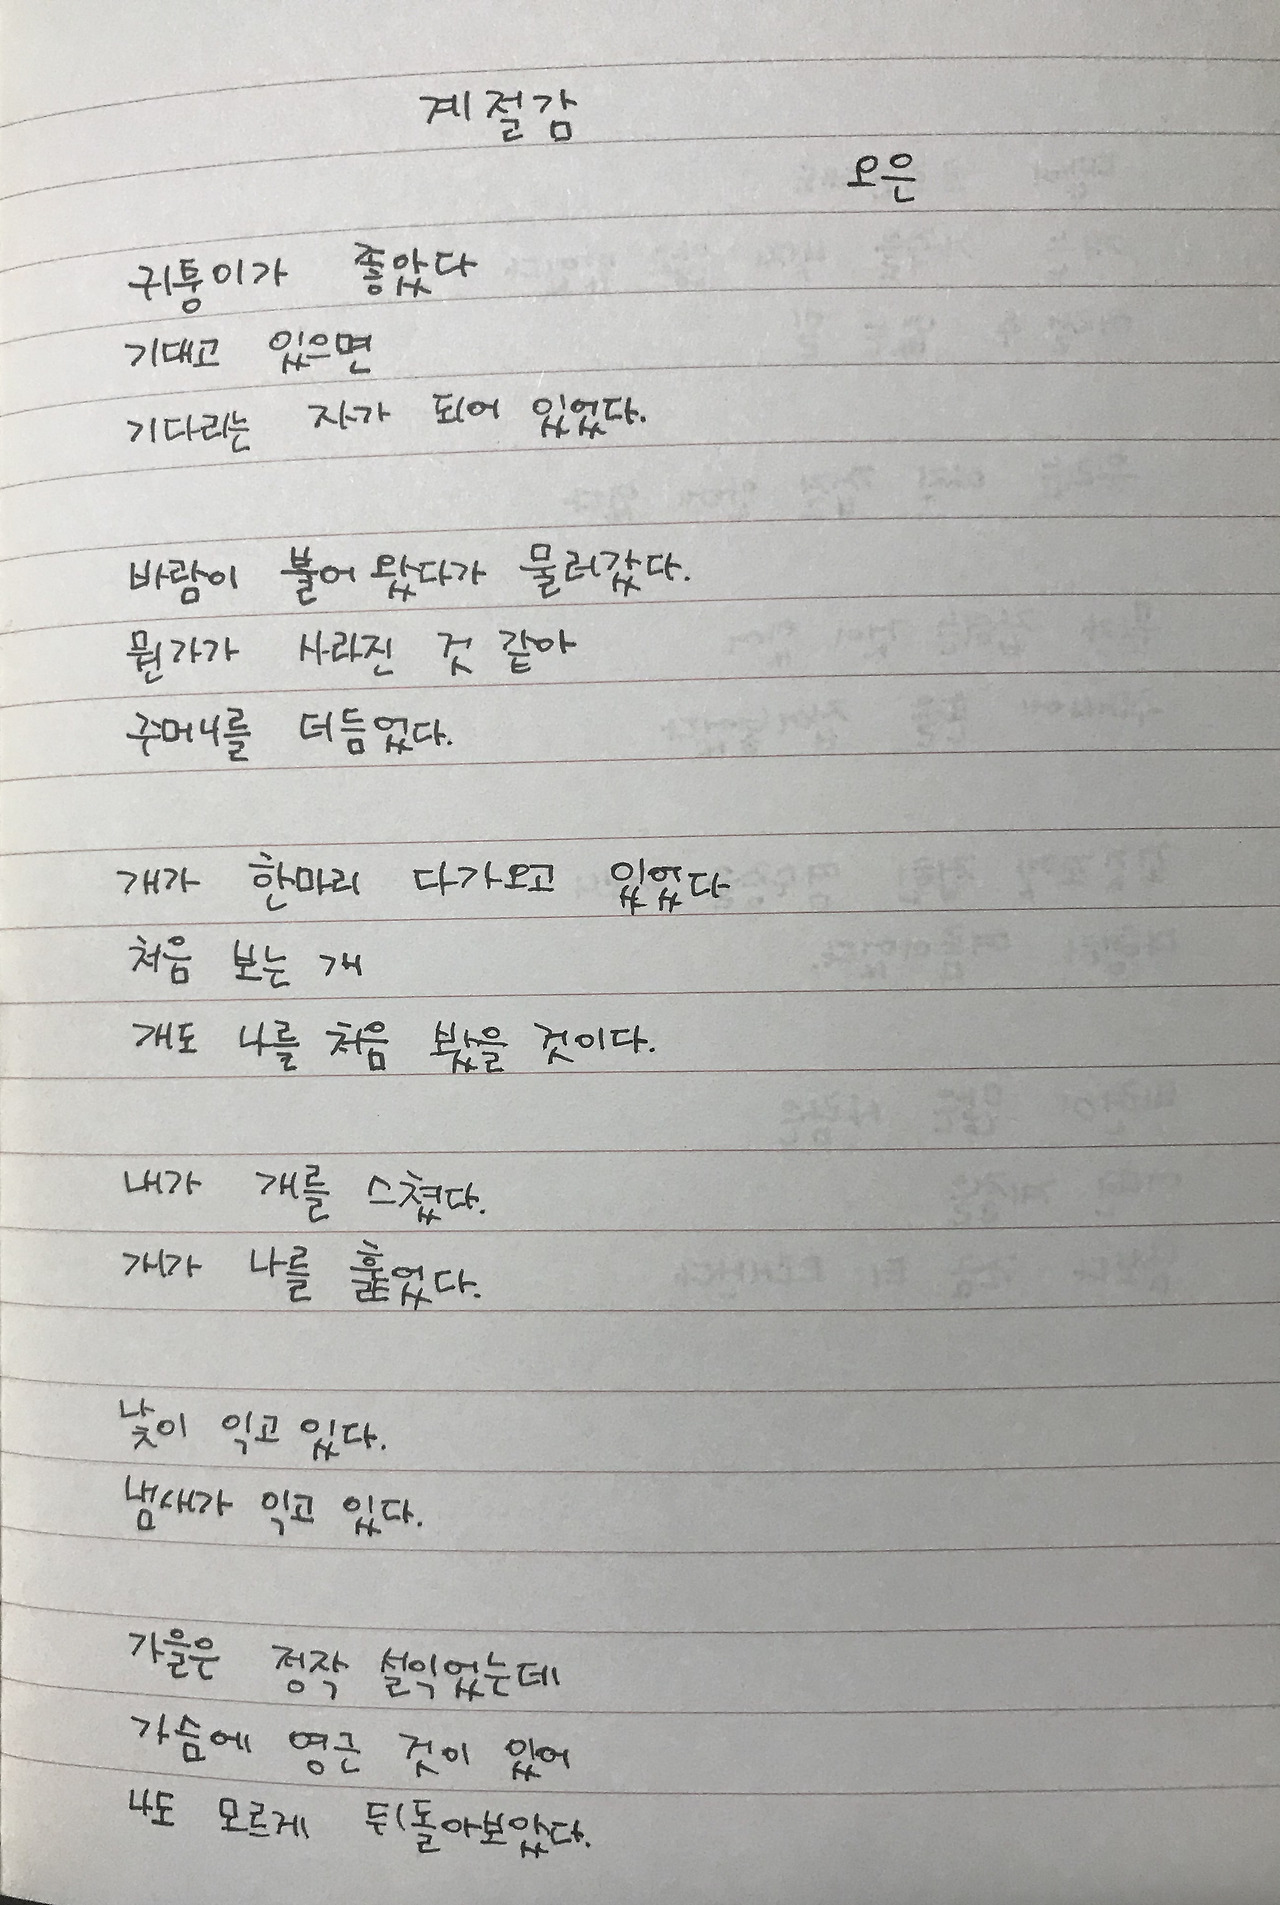 계절감
오은
귀퉁이가 좋았다
기대고 있으면
기다리는 자가 되어 있었다.
바람이 불어왔다가 물러갔다.
뭔가가 사라진 것 같아
주머니를 더듬었다.
개가 한마리 다가오고 있었다
처음 보는 개
개도 나를 처음 봤을 것이다.
내가 개를 스쳤다.
개가 나를 훑었다.
낮이 익고 있다.
냄새가 익고 있다.
가을은 정작 설익었는데
가슴에 영근 것이 있어
나도 모르게 뒤돌아보았다.